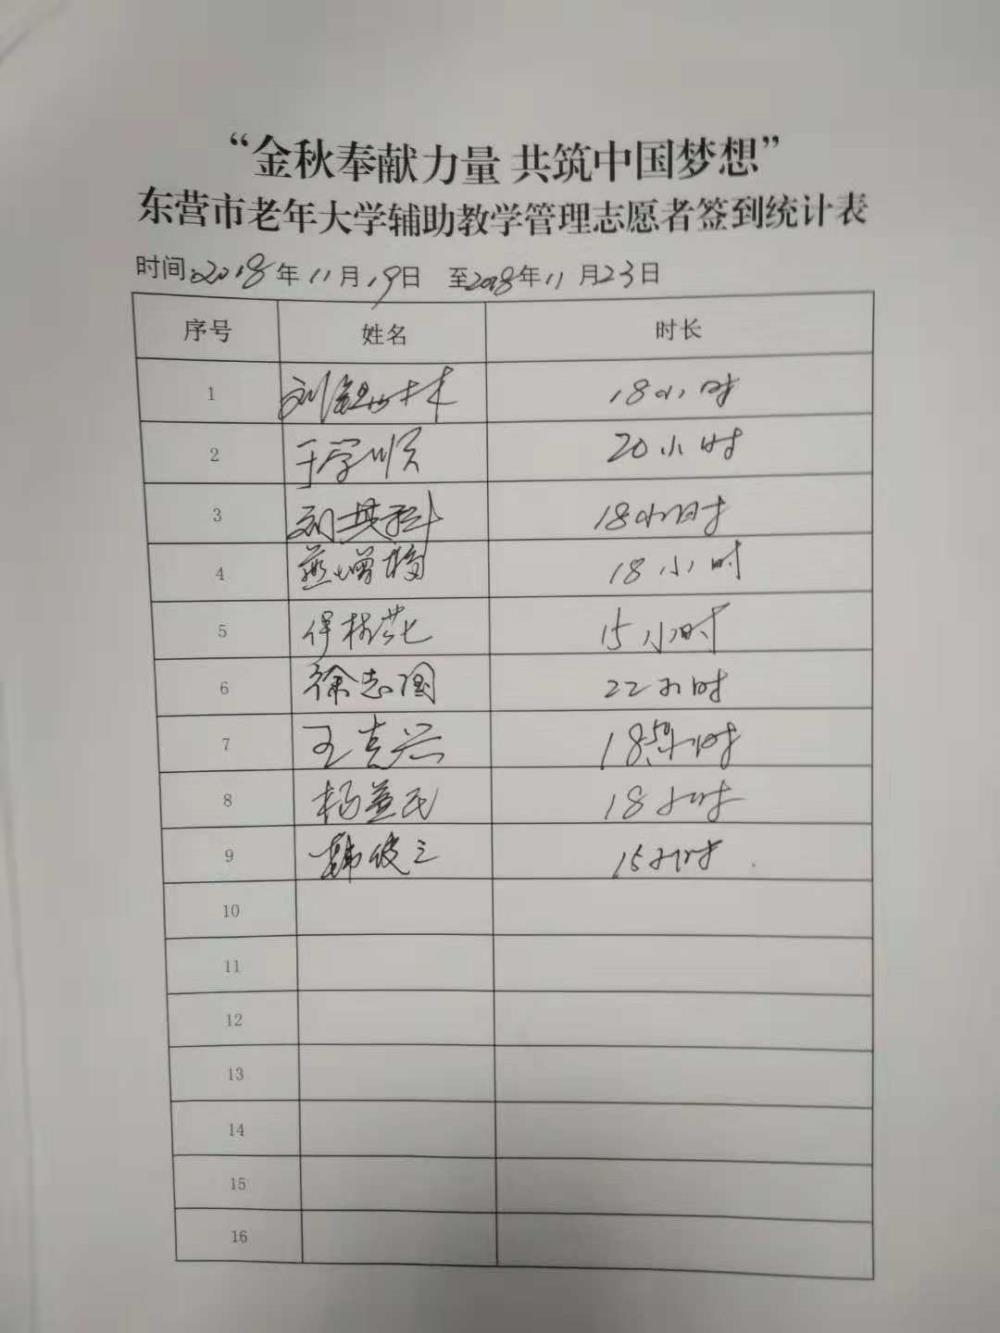 “金秋奉献力量 共筑中国梦想”
东营市老年大学辅助教学管理志愿者签到统计表
时间:2018年11月19日 至2018年11月23日
序号 姓名 时长
1 刘 林 18小时
2 于学顺 20小时
3 刘其科 18小时
4 燕增梅 18小时
5 15小时
6 徐志国 22小时
7 王克兴 小时
8 杨益民 18小时
9 韩俊三 15小时
10
11
12
13
14
15
16